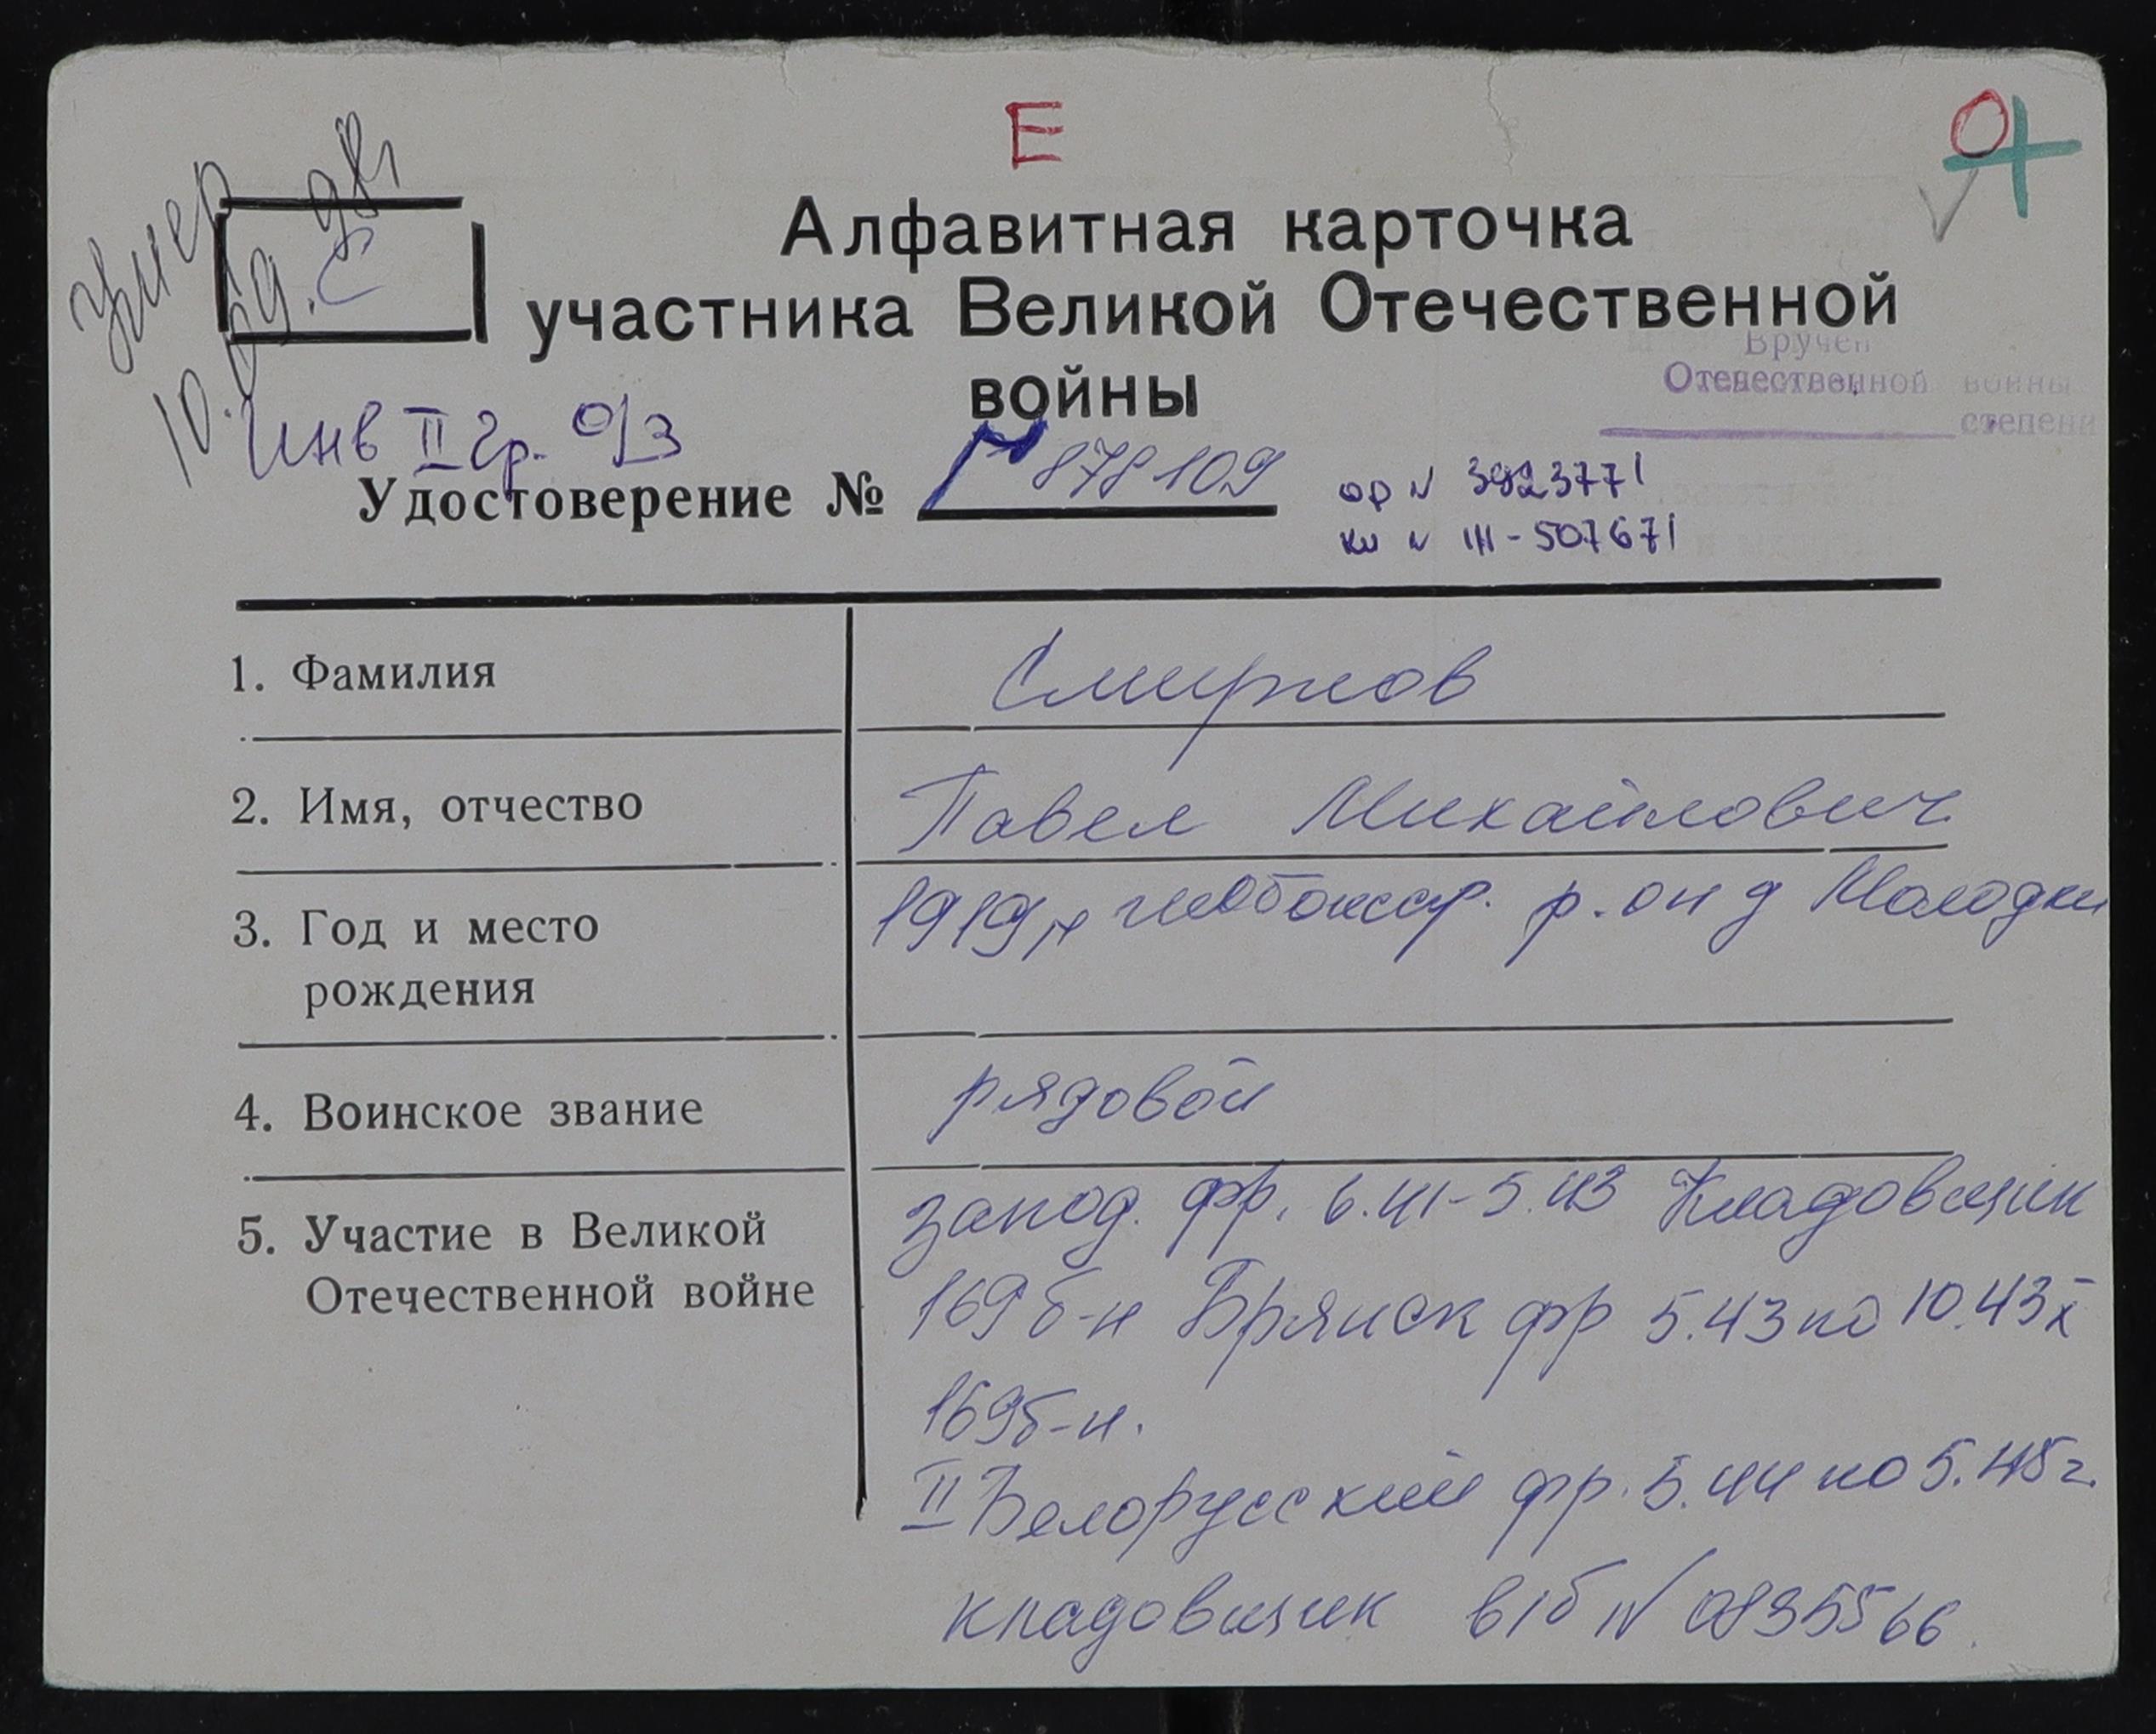 Е
О+
умер
10.09.98г
С
Алфавитная карточка
участника Великой Отечественной
войны
Вручен
Отечественной войны
степени
Инв II гр. о/з
Удостоверение № Г 878109
ор N 3923771
кн N III-507671
1. Фамилия Смирнов
2. Имя, отчество Павел Михайлович
3. Год и место рождения 1919, р.он д Молодки
4. Воинское звание рядовой
5. Участие в Великой Отечественной войне запад. фр. 6.41-5.43 Кладовщик
169 б-н Брянск фр 5.43 по 10.43
169б-н.
II Белорусский фр. 5.44 по 5.45г.
кладовщик в/б N 0835566.